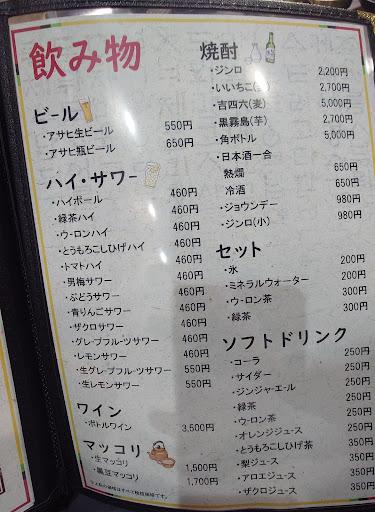 飲み物
ビール
・アサヒ生ビール 550円
・アサヒ瓶ビール 650円
ハイ・サワー
・ハイボール 460円
・緑茶ハイ 460円
・ウ-ロンハイ 460円
・とうもろこしひげハイ 460円
・トマトハイ 460円
・男梅サワー 460円
・ぶどうサワー 460円
・青りんごサワー 460円
・ザクロサワー 460円
・グレ-プフル-ツサワー 460円
・レモンサワー 460円
・生グレ-プフル-ツサワー 550円
・生レモンサワー 550円
ワイン
・ボトルワイン 3,500円
マッコリ
・生マッコリ 1,500円
・黒豆マッコリ 1,700円
焼酎
・ジンロ 2,200円
・いいちこ(麦) 2,700円
・吉四六(麦) 5,000円
・黒霧島(芋) 2,700円
・角ボトル 5,000円
・日本酒一合
熱燗 650円
冷酒 650円
・ジョウンデー 980円
・ジンロ(小) 980円
セット
・氷 200円
・ミネラルウォーター 200円
・ウ-ロン茶 300円
・緑茶 300円
ソフトドリンク
・コーラ 250円
・サイダー 250円
・ジンジャ-エ-ル 250円
・緑茶 250円
・ウ-ロン茶 250円
・オレンジジュース 250円
・とうもろこしひげ茶 350円
・梨ジュース 350円
・アロエジュース 350円
・ザクロジュース 350円